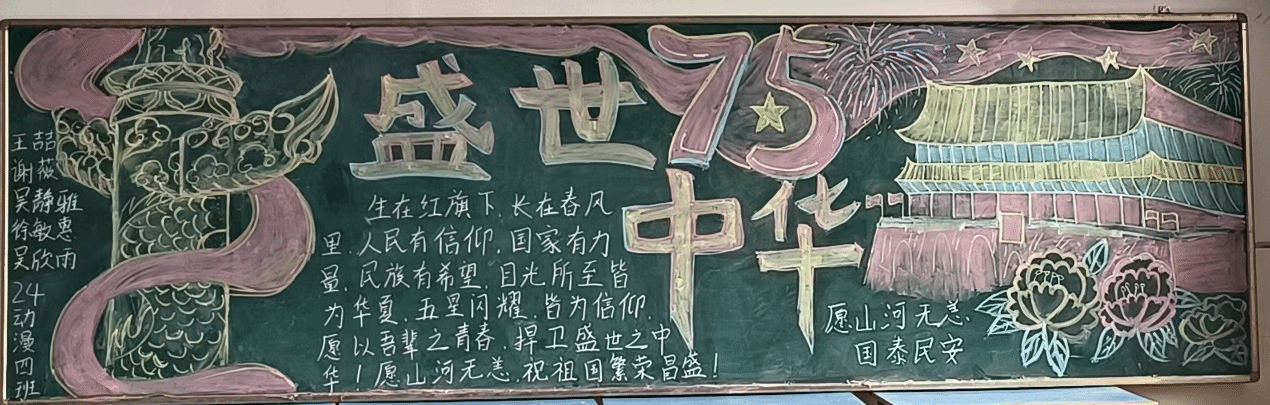 王喆
谢薇
吴静雅
徐敏惠
吴欣雨
24
动
漫
四
班
盛世75
中华
生在红旗下,长在春风
里.人民有信仰,国家有力
量,民族有希望,目光所至皆
为华夏,五星闪耀,皆为信仰.
愿以吾辈之青春,捍卫盛世之中
华!愿山河无恙,祝祖国繁荣昌盛!
愿山河无恙
国泰民安